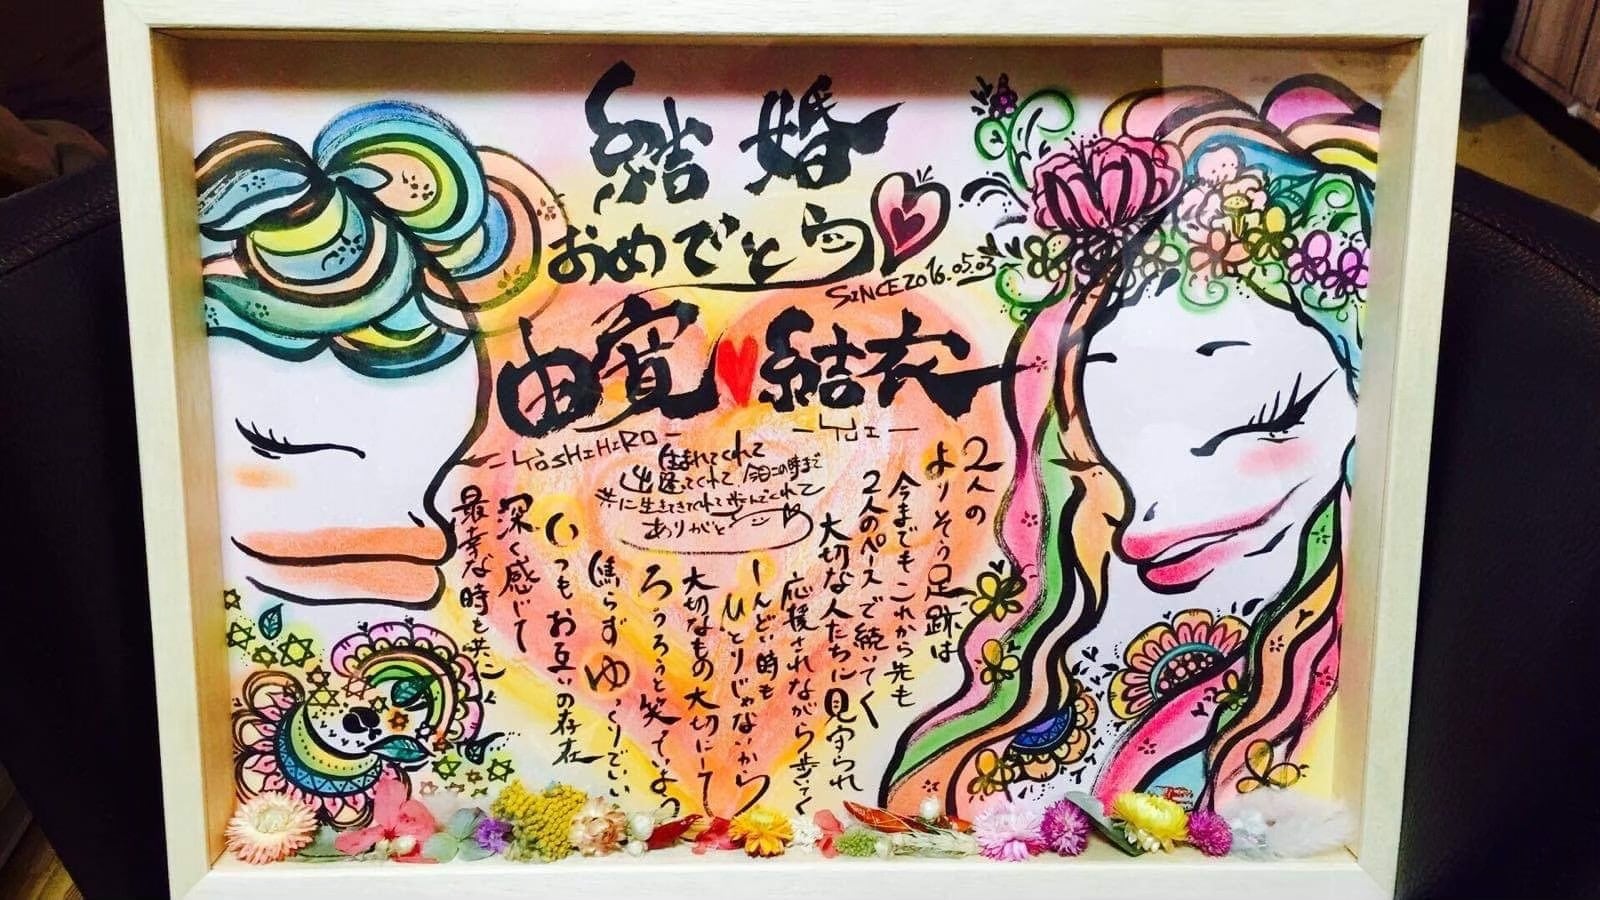 結婚
おめでとう
SINCE2016.05.03
由寛♥結衣
-YOSHIHIRO-
-YUI-
生まれてくれて
出逢ってくれて、今日この時まで
共に生きてきてくれて歩んでくれて
ありがとう
2人の
よりそう足跡は
今までもこれから先も
2人のペースで続いてく
大切な人たちに見守られ
応援されながら歩いてく
しんどい時も
ひとりじゃないから
大切なもの大切にして
ろうろうと笑っていよう
焦らずゆっくりでいい
いつもお互いの存在
深く感じて
最幸な時を共に